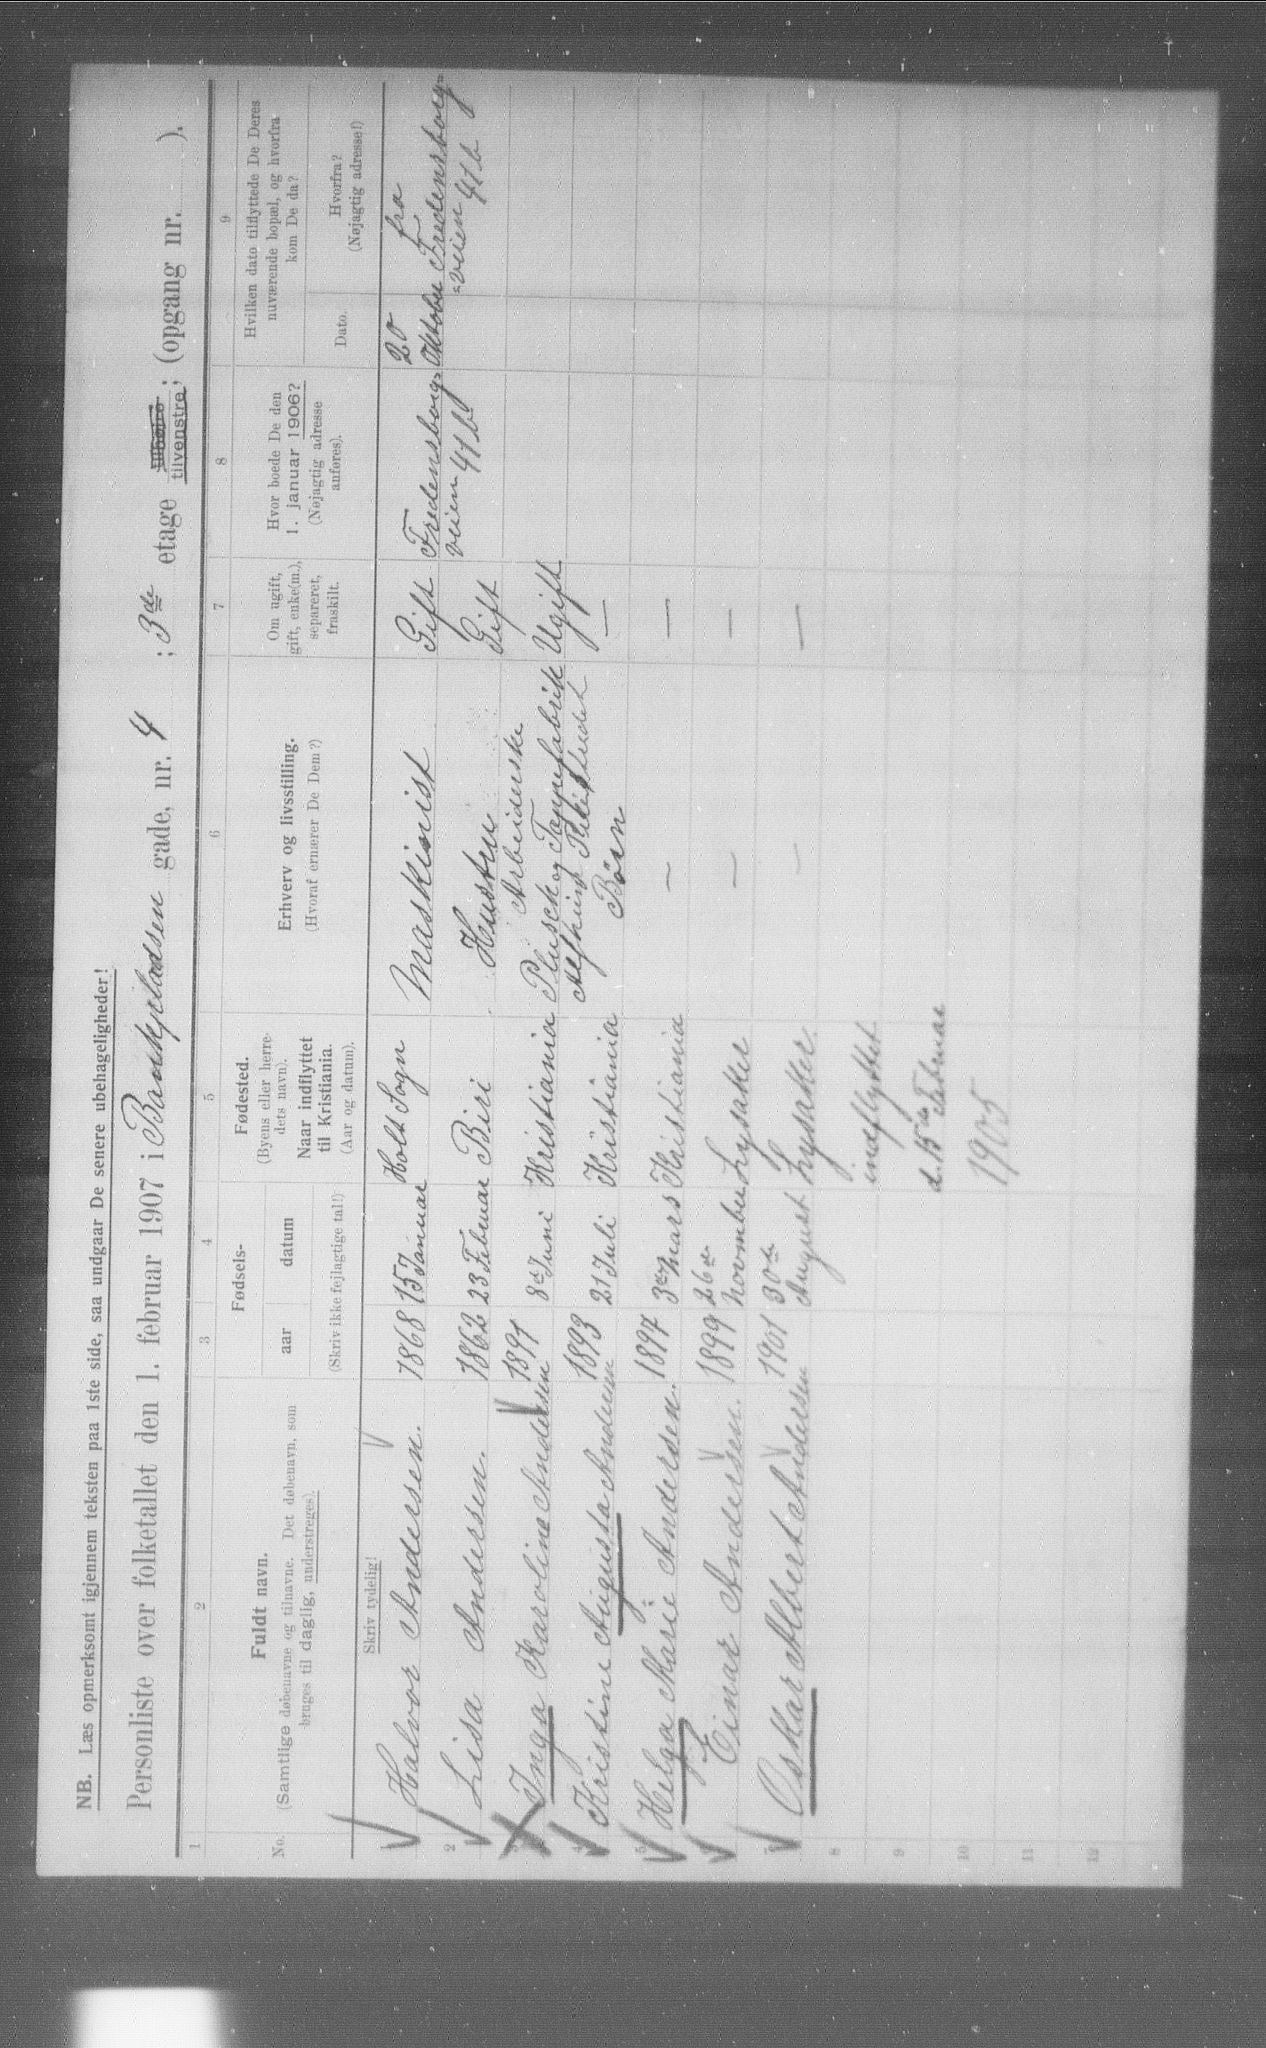 NB. Læs opmerksomt igjennem teksten paa 1ste side, saa undgaar De senere ubehageligheder!
Personliste over folketallet den 1. februar 1907 i Bankpladsen gade, nr. 4 ; 3de etage tilvenstre; (opgang nr. ).
1 2 3 4 5 6 7 8 9
No.
Fuldt navn.
(Samtlige døbenavne og tilnavne. Det døbenavn, som
bruges til daglig, understreges).
Fødsels-
aar datum
(Skriv ikke feilagtige tal!)
Fødested.
(Byens eller herre-
dets navn).
Naar indflyttet
til Kristiania.
(Aar og datum).
Erhverv og livsstilling.
(Hvoraf ernærer De Dem?)
Om ugift,
gift, enke(m.),
separeret,
fraskilt.
Hvor boede De den
1. januar 1906?
(Nøjagtig adresse
anføres).
Hvilken dato tilflyttede De Deres
nuværende bopæl, og hvorfra
kom De da?
Dato.
Hvorfra?
(Nøjagtig adresse!)
Skriv tydelig!
1 Halvor Andersen. 1868 15 Januar Holt Sogn Maskinist Gift Fredensborg-
veien 41b 20
Oktober fra
Fredensborg-
veien 41b
2 Lisa Andersen. 1862 23 Februar Biri Hustru Gift
3 Inga Karoline Andersen 1891 8de Juni Kristiania Arbeiderske
Plusch og Tæppefabrik Ugift
4 Kristine Augusta Andersen 1893 21 Juli Kristiania Børn —
5 Helga Marie Andersen. 1897 3die Mars Kristiania — —
6 Einar Andersen. 1899 26de
November Lysaker — —
7 Oskar Albert Andersen 1901 30de
August Lysaker. — —
8 indflyttet
9 d. 15de Februar
10 1905
11
12